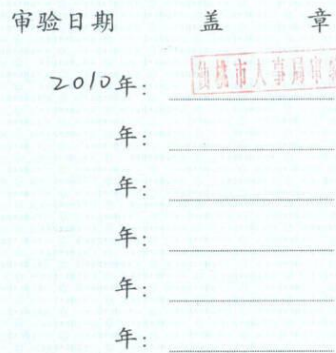 审验日期 盖 章
2010年: 仙桃市人事局审
年:
年:
年:
年:
年: